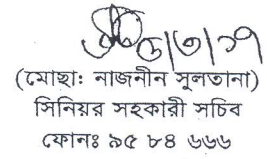 (মোছা: নাজনীন সুলতানা)
সিনিয়র সহকারী সচিব
ফোনঃ ৯৫ ৮৪ ৬৬৬